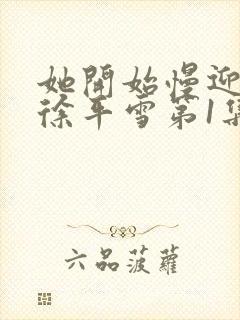 她開始慢迎
徐平雪第1集
六品菠蘿